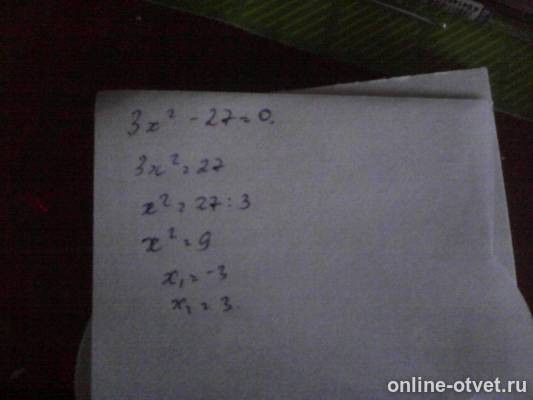 3x² - 27 = 0.
3x² = 27
x² = 27 : 3
x² = 9
x₁ = -3
x₂ = 3.
online-otvet.ru